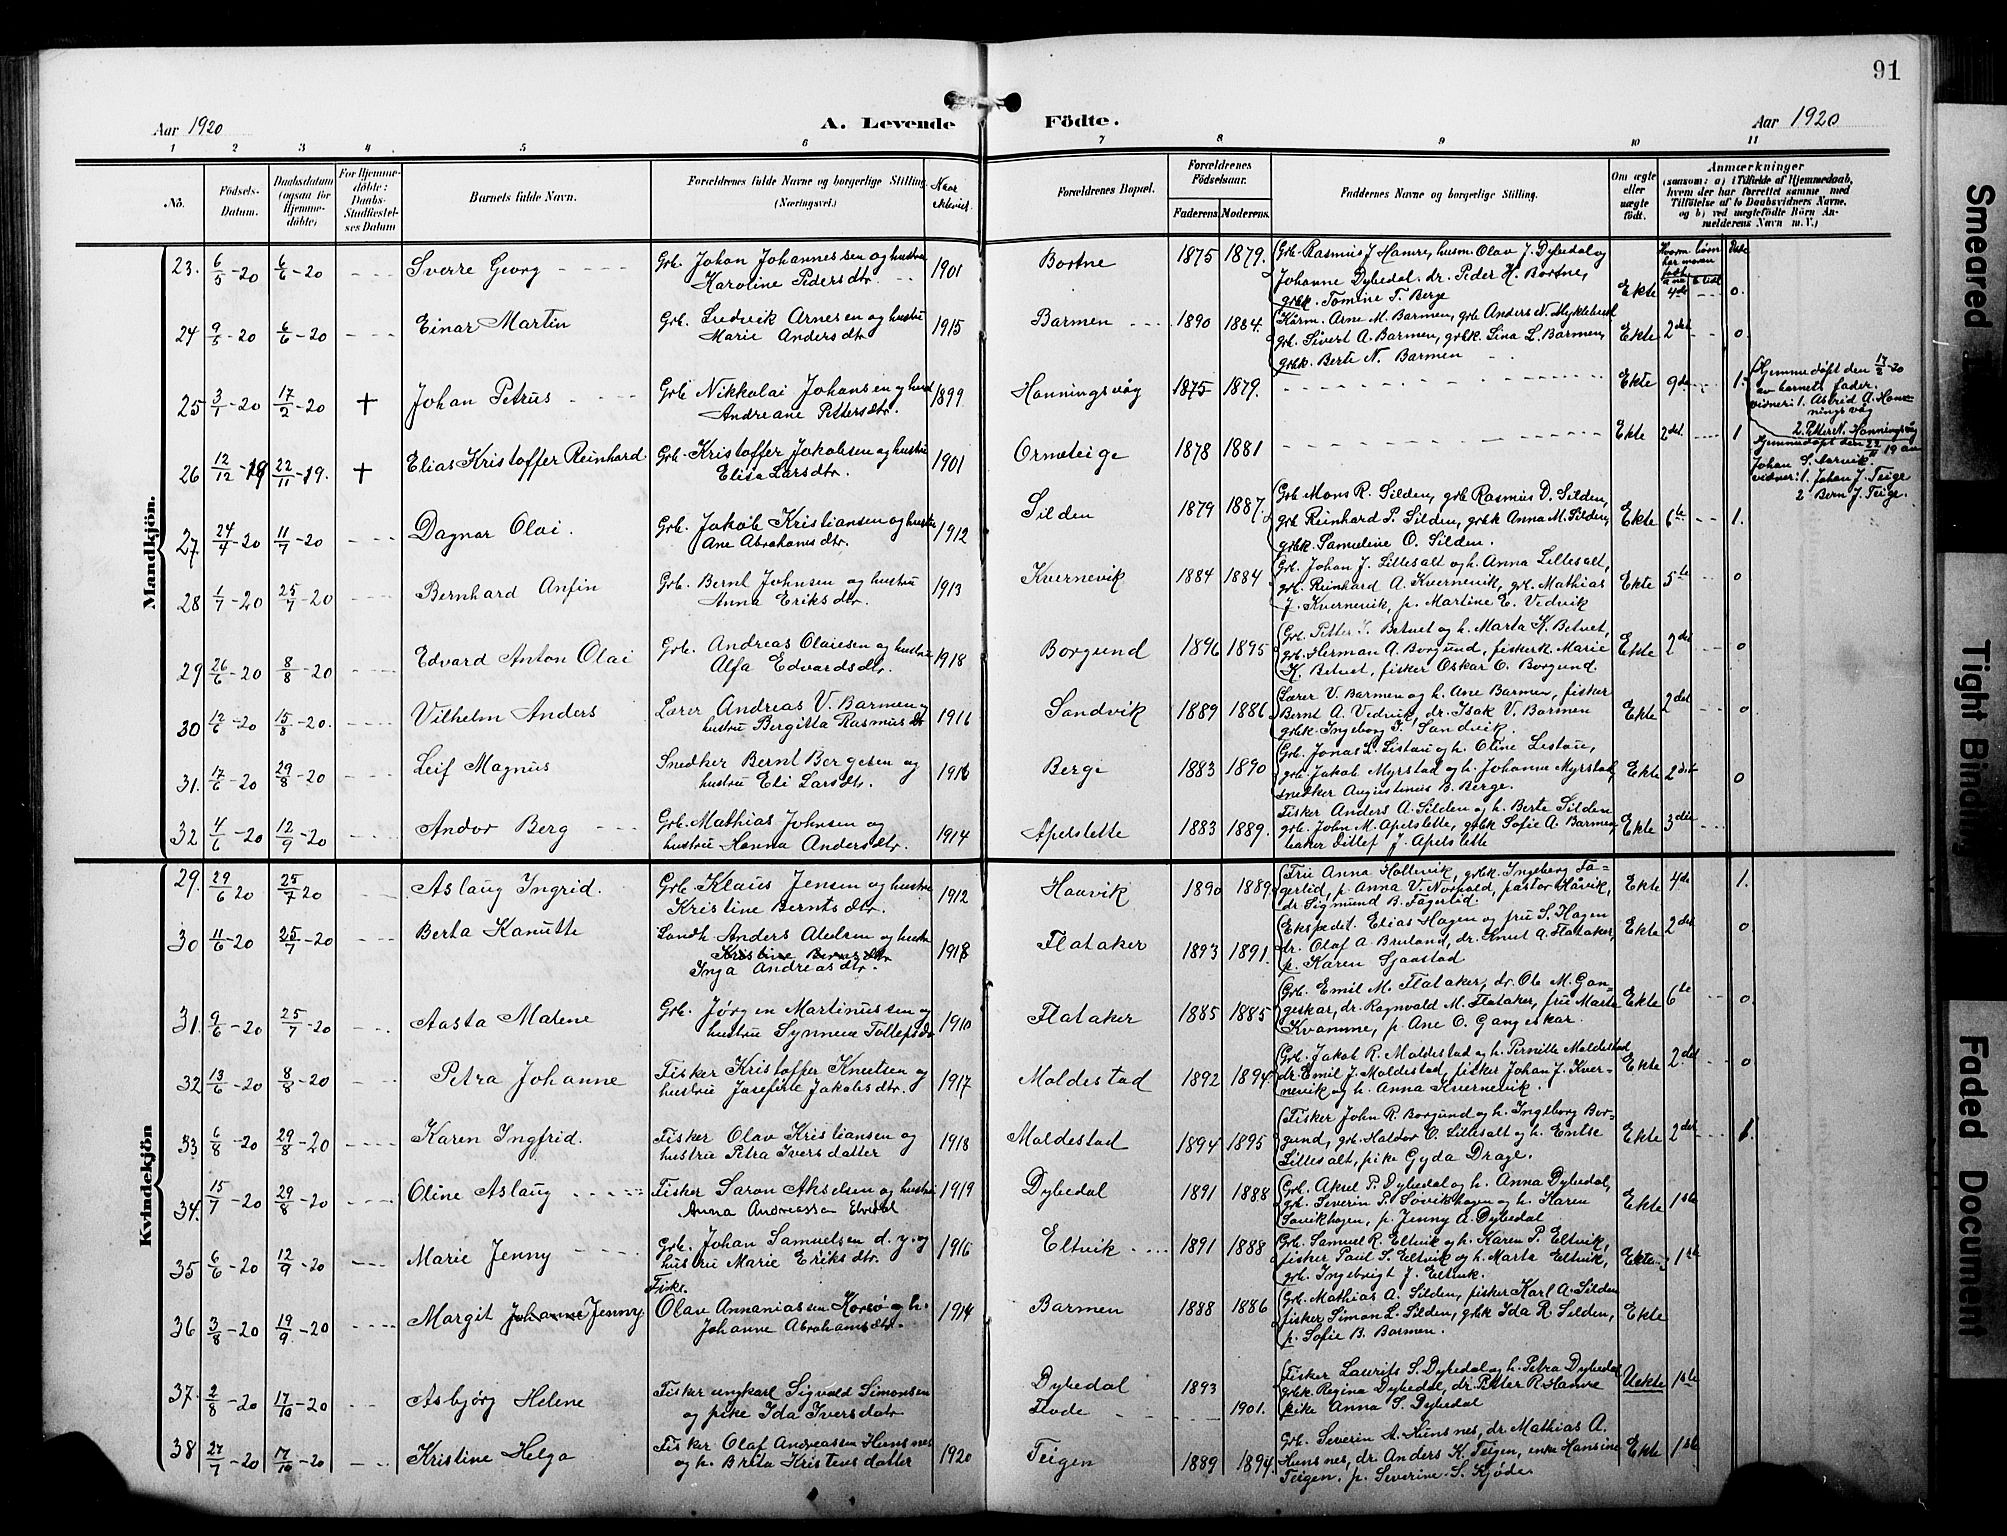 91
Aar 1920
A. Levende
Födte.
Aar 1920
1 2 3 4 5 6 7 8 9 10 11
No.
Födsels-Datum.
Daabsdatum (ogsaa for Hjemmedöbte)
For Hjemmedöbte: Daabs-Stadfæstelses Datum
Barnets fulde Navn.
Forældrenes fulde Navne og borgerlige Stilling. (Næringsvei.)
Naar
Forældrenes Bopæl.
Forældrenes Födselsaar.
Faderens. Moderens.
Faddernes Navne og borgerlige Stilling.
Om ægte eller uægte födt.
Anmærkninger
(saasom: a) i Tilfælde af Hjemmedaab,
hvem der har forrettet samme med
Tilföielse af to Daabsvidners Navne,
og b) ved uægtefödte Börn An-
melderens Navn m. V.)
Mandkjön.
23. 6/5-20 6/6-20 Sverre Georg Grb. Johan Johannessen og hustru 1901 Bortne 1875 1879. Grb. Rasmus J Hamre, husm. Olav J. Dybedal og
Karoline Pedersdtr. Johanne Dybedal, dr. Peder H. Bortne, Ekte 4de 0.
grbk. Tomine T. Berge
24 9/5-20 6/6-20 Einar Martin Grb. Ludvik Arnesen og hustru 1915 Barmen 1890 1884. Kårm. Arne M. Barmen, grb Anders N. Myklebust
Marie Andersdtr. grb. Sivert A. Barmen, grbk. Lina L. Barmen, Ekte 2det 0
grbk. Berte N. Barmen
25 3/1-20 17/2-20 + Johan Petrus Grb Nikkolai Johansen og hust 1899 Honningsvåg 1875 1879. Ekte 9de 1.
Andreane Pettersdtr.
Hjemmedöpt den 17/2-20
av barnets fader.
vidner: 1. Astrid A. Hon-
ningsvåg
2. Petter N. Honningsvåg
26 12/12-19 22/11-19. + Elias Kristoffer Reinhard Grb. Kristoffer Jakobsen og hustru 1901 Ormeteige 1878 1881 Ekte 2det. 1
Elisa Larsdtr.
Hjemmedöpt den 22/11 19 av
Johan S. Aarvik.
vidner: 1. Johan J. Teige
2 Bern J. Teige.
27 24/4-20 11/7-20 Dagnar Olai. Grb. Jakob Kristiansen og hustru 1912 Silden 1879 1887. Grb Mons R. Silden, grb Rasmus D. Silden,
Ane Abrahamsdtr. grb Reinhard P. Silden, grbk Anna M. Silden, Ekte 6te 1.
grbk. Samueline O. Silden.
28 1/7-20 25/7-20 Bernhard Anfin Grb. Bernt Johnsen og hustru 1913 Kvernevik 1884 1884 Grb. Johan J. Lillesalt og h. Anna Lillesalt,
Anna Eriksdtr. grb. Reinhard A. Kvernevik, grb. Mathias Ekte 5te 0
J. Kvernevik, p. Martine E. Vedvik
29 26/6-20 8/8-20 Edvard Anton Olai Grb. Andreas Olaiesen og hustru 1918 Borgund 1896 1895 Grb. Petter J. Betvet og h. Marta K. Betvet,
Alfa Edvardsdtr. grb. Herman A. Borgund, fiskerk Marie Ekte 2det 0
K. Betvet, fisker Oskar O. Borgund.
30 12/6-20 15/8-20. Vilhelm Anders Lærer Andreas V. Barmen og 1916 Sandvik 1889 1886 Lærer V. Barmen og h. Ane Barmen, fisker
hustru Bergitta Rasmusdtr Bernt A. Vedvik, dr. Isak V. Barmen Ekte 2det 0
grbk. Ingeborg I. Sandvik.
31. 17/6-20 29/8-20 Leif Magnus Snedker Bernt Bergesen og 1916 Berge 1883 1890 Grb. Jonas L. Listau og h. Oline Listau,
hustru Eli Larsdtr. grb. Jakob Myrstad og h. Johanne Myrstad, Ekte 2det 0
snedker Augustinus B. Berge.
32 4/6-20 12/9-20 Andor Berg Grb. Mathias Johnsen og 1914 Apelslette 1883 1889. Fisker Anders A. Silden og h. Berte Silden
hustru Hanna Andersdtr. grb. John M. Apelslette, grbk Sofie A. Barmen Ekte 3die
baker Ditlef J. Apelslette
Kvindekjön
29. 29/6 20 25/7 20 Aslaug Ingrid. Grb. Klaus Jensen og hustru 1912 Haavik 1890 1889. Fru Anna Holtevik, grbk. Ingeborg Fa-
Kristine Berntsdtr. gerlid, p. Anna V. Norpold, pastor Håvik, Ekte 4de 1.
dr Sigmund B. Fagerlid.
30 11/6-20 25/7-20 Berta Kanutte Landh. Anders Alelsen og hustru 1918 Flataker 1893 1891. Ekspedit. Elias Hagen og fru S. Hagen
Kristine Bernsdtr dr. Olaf A. Bruland, dr. Knut A. Flataker, Ekte 2det 0
Inga Andreasdtr. p. Karen Sjaastad
31. 9/6-20 25/7-20 Aasta Malene Grb. Jørgen Martinussen og 1910 Flataker 1885 1885 Grb. Emil M. Flataker, dr. Ole M. Gan-
hustru Synneva Tollefsdtr geskar, dr. Ragnvald M. Flataker, fru Marta Ekte 6te 0.
Kvamme, p. Ane O. Gangeskar.
32 13/6-20 8/8-20 Petra Johanne Fisker Kristoffer Knutsen og 1917 Moldestad 1892 1894 Grb. Jakob R. Moldestad og h. Pernille Moldestad
hustru Josefine Jakobsdtr. dr. Emil J. Moldestad, fisker Johan J. Kver- Ekte 2det 0
nevik og h. Anna Kvernevik.
33 6/8-20 29/8-20 Karen Ingfrid. Fisker Olav Kristiansen og 1918 Moldestad 1894 1895 Fisker John R. Borgund og h. Ingeborg Bor-
hustru Petra Iversdatter gund, grb. Haldor O. Lillesalt og h. Entse Ekte 2det 1.
Lillesalt, pike Gyda Drage.
34. 15/7-20 29/8-20 Oline Aslaug Fisker Saron Akselsen og hustru 1919 Dybedal 1891 1888 Grb. Aksel P. Dybedal og h. Anna Dybedal,
Anna Andreassen grb. Severin P. Sövikhagen og h. Karen Ekte 1ste
Sövikhagen, p. Jenny A. Dybedal
35 6/6-20 12/9-20 Marie Jenny Grb. Johan Samuelsen d. y. og 1916 Eltvik 1891 1888 Grb. Samuel R. Eltvik og h. Karen P. Eltvik,
hustru Marie Eriksdtr. fisker Paul S. Eltvik og h. Marta Eltvik, Ekte 1ste
grb. Ingebrigt J. Eltvik.
36 3/8-20 19/9-20 Margit Johanne Jenny Fisker Olav Annaniassen Korsø og h. 1914 Barmen 1888 1886 Grb. Mathias A. Silden, fisker Karl A. Silden
Johanne Abrahamsdtr. fisker Simon L. Silden, grbk Ida R. Silden, Ekte
p. Sofie B. Barmen.
37. 2/8-20 17/10-20 Asbjørg Helene Fisker ungkarl Sigvald Simonsen Dybedal 1893 Fisker Laurits S. Dybedal og h. Petra Dybedal
og pike Ida Iversdatr. Flode 1901. grbk. Regina Dybedal, dr. Petter R. Hamre Uekte 1ste
pike Anna S. Dybedal
38 27/7-20 17/10-20 Kristine Helga Fisker Olaf Andreassen Hunsnes 1920 Teigen 1889 1894. Grb. Severin A. Hunsnes, dr. Mathias A.
og h. Brita Kristensdatter Hunsnes, dr. Anders K. Teigen, enke Hansine Ekte 1ste
Teigen, p. Severine S. Kjøde.
Smeared
Tight Binding
Faded Document